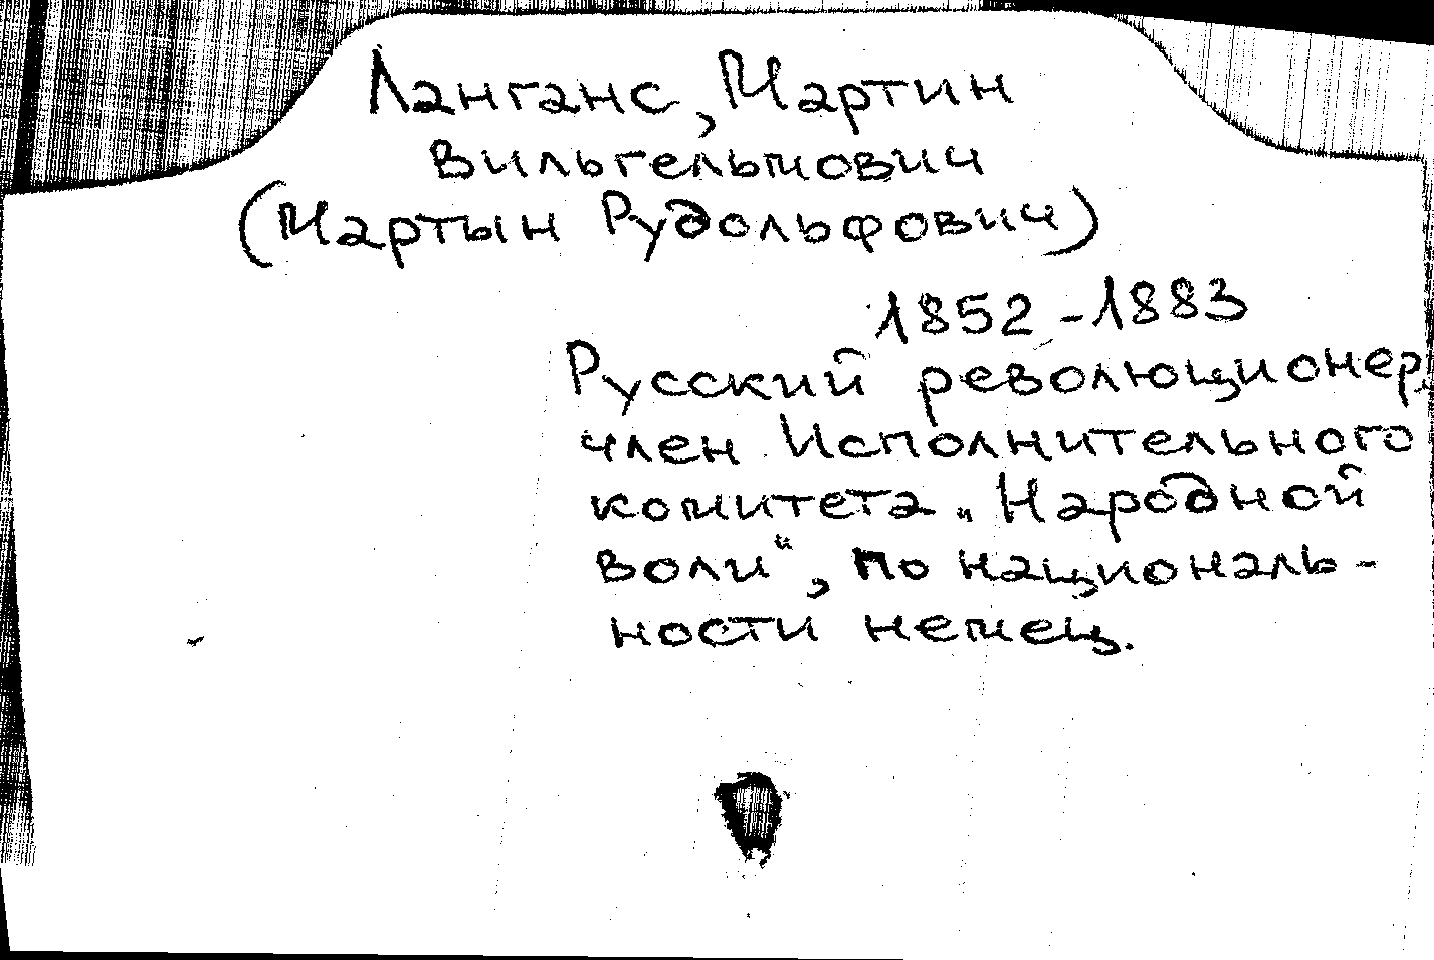 Ланганс, Мартин
Вильгельмович
(Мартын Рудольфович)
1852-1883
Русский революционер,
член Исполнительного
комитета „Народной
воли“, по националь-
ности немец.